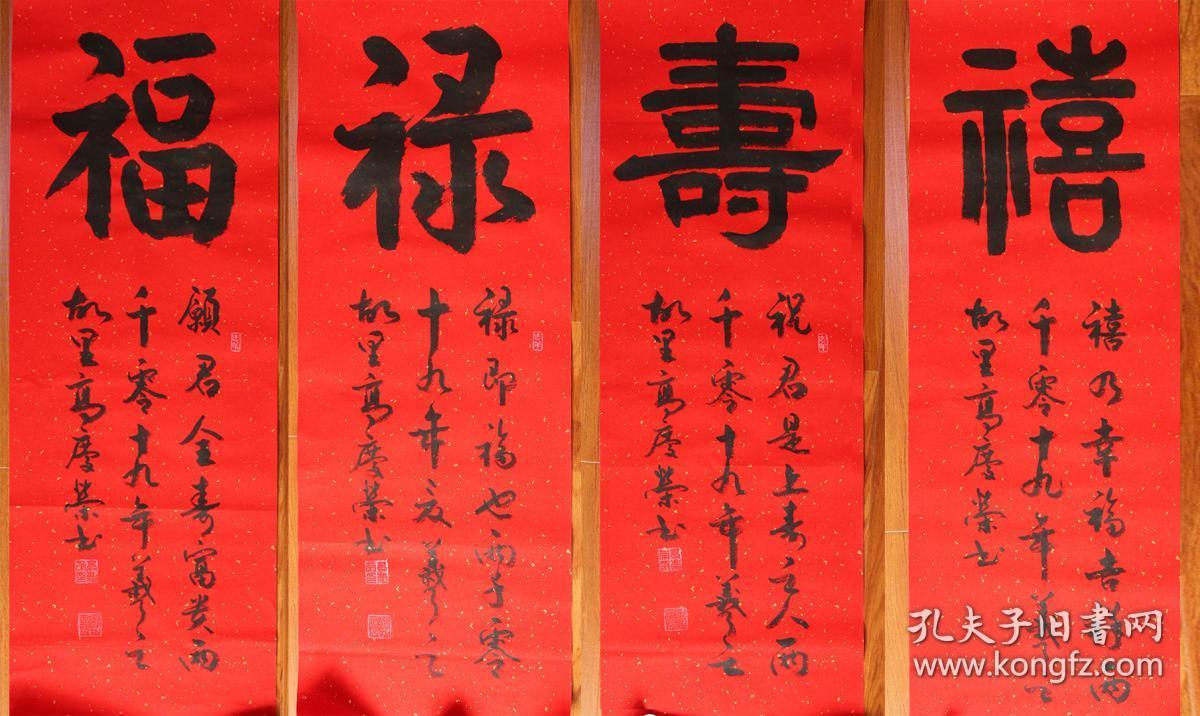 福
願君全寿富贵兩
千零十九年羲之
故里高慶榮书
禄
禄即福也兩千零
十九年夏羲之
故里高慶榮书
壽
祝君是上寿主人兩
千零十九年羲之
故里高慶榮书
禧
禧乃幸福吉祥兩
千零十九年羲之
故里高慶榮书
孔夫子旧書网
www.kongfz.com